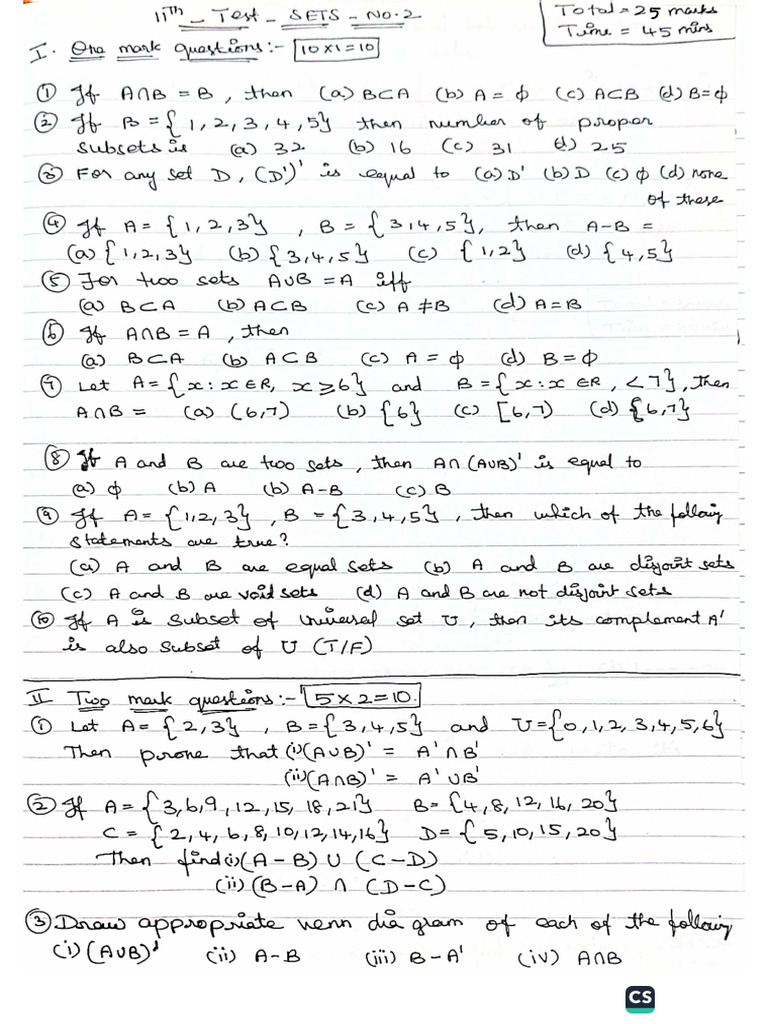 11th - Test - SETS - No.2
Total = 25 marks
Time = 45 mins
I. One mark questions:- 10x1=10
① If A∩B = B, then (a) B⊂A (b) A = ϕ (c) A⊂B (d) B=ϕ
② If B = {1,2,3,4,5} then number of proper
subsets is (a) 32 (b) 16 (c) 31 (d) 25
③ For any set D, (D')' is equal to (a) D' (b) D (c) ϕ (d) none
of these
④ If A = {1,2,3}, B = {3,4,5}, then A-B =
(a) {1,2,3} (b) {3,4,5} (c) {1,2} (d) {4,5}
⑤ For two sets A∪B = A iff
(a) B⊂A (b) A⊂B (c) A≠B (d) A=B
⑥ If A∩B = A, then
(a) B⊂A (b) A⊂B (c) A = ϕ (d) B = ϕ
⑦ Let A = {x: x∈R, x≥6} and B = {x: x∈R, <7}, then
A∩B = (a) (6,7) (b) {6} (c) [6,7) (d) {6,7}
⑧ If A and B are two sets, then A∩(A∪B)' is equal to
(a) ϕ (b) A (b) A-B (c) B
⑨ If A = {1,2,3}, B = {3,4,5}, then which of the following
statements are true?
(a) A and B are equal sets (b) A and B are disjoint sets
(c) A and B are void sets (d) A and B are not disjoint sets
⑩ If A is Subset of universal set U, then its complement A'
is also subset of U (T/F)
II Two mark questions:- 5x2=10.
① Let A = {2,3}, B = {3,4,5} and U = {0,1,2,3,4,5,6}
Then prove that (i) (A∪B)' = A'∩B'
(ii) (A∩B)' = A'∪B'
② If A = {3,6,9,12,15,18,21} B = {4,8,12,16,20}
C = {2,4,6,8,10,12,14,16} D = {5,10,15,20}
Then find (i) (A-B) ∪ (C-D)
(ii) (B-A) ∩ (D-C)
③ Draw appropriate venn diagram of each of the following
(i) (A∪B)' (ii) A-B (iii) B-A' (iv) A∩B
CS